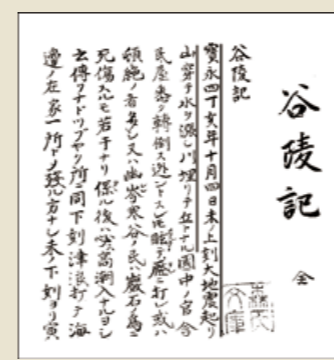 谷陵記 全
谷陵記
寳永四丁亥年十月四日未ノ上刻大地震起リ
山穿チ水ヲ漲シ川埋リテ丘トナル國中ノ官舎
民屋悉ク轉倒ス迯ントスレ𪜈眩テ壓ニ打レ或ハ
頓絶ノ者多シ又ハ幽岑寒谷ノ民ハ巌石ノ為ニ
死傷スルモ若干ナリ係ル後ハ必高潮入ナルヨシ
云傳ナドツブヤク所ニ同下刻津浪打テ海
邊ノ在家一所トシテ殘ル方ナシ未ノ下刻ヨリ寅